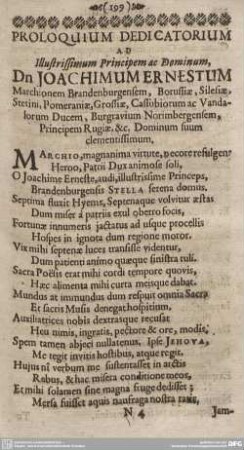 (199)
PROLOQUIUM DEDICATORIUM
AD
Illustrissimum Principem ac Dominum,
Dn JOACHIMUM ERNESTUM
Marchionem Brandenburgensem, Borussiæ, Silesiæ,
Stetini, Pomeraniæ, Grossiæ, Cassiobiorum ac Vanda-
lorum Ducem, Burgravium Norimbergensem,
Principem Rugiæ, &c. Dominum suum
clementissimum,
MARCHIO, magnanima virtute, decore refulgens
Heroo, Patrii Dux animose soli,
O Joachime Erneste, audi, illustrissime Princeps,
Brandenburgensis STELLA serena domus.
Septima fluxit Hyems, Septenaque volvitur æstas
Dum miser à patriis exul oberro focis,
Fortunæ innumeris jactatus ad usque procellis
Hospes in ignota dum regione moror.
Vix mihi septenæ luces transisse videntur,
Dum patienti animo quæque sinistra tuli.
Sacra Poësis erat mihi cordi tempore quovis,
Hæc alimenta mihi curta meisque dabat.
Mundus at immundus dum respuit omnia Sacra
Et sacris Musis denegat hospitium,
Auxiliatrices nobis dextrasque recusat
Heu nimis, ingratis, pectore & ore, modis,
Spem tamen abject nullatenus. Ipse JEHOVA,
Me tegit invitis hostibus, atque regit.
Hujus ni verbum me sustentasset in arctis
Rebus, & hac misera conditione meor,
Et mihi solamen sine magna fruge dedisset;
Mersa fuisset aquis naufraga nostra ratis,
N 4
Jam-